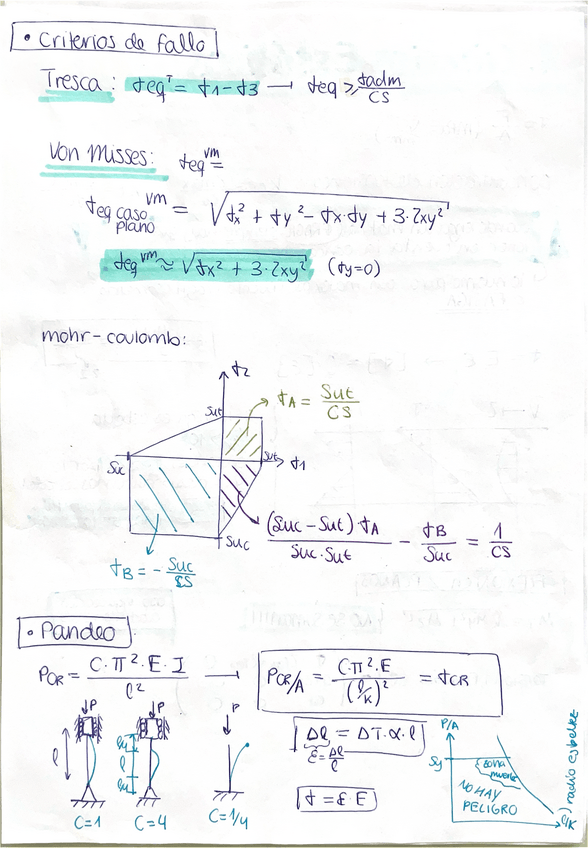 • Criterios de fallo
Tresca: σeqᵀ = σ1 - σ3 → σeq ≥ σadm/CS
Von Misses: σeqᵛᵐ =
σeq caso plano ᵛᵐ = √(σx² + σy² - σx·σy + 3·τxy²)
σeqᵛᵐ ≈ √(σx² + 3·τxy²) (σy=0)
mohr-coulomb:
σ2
Sut
σA = Sut/CS
Suc
Sut
σ1
Suc
(Suc - Sut) σA / Suc·Sut - σB/Suc = 1/CS
σB = - Suc/CS
• Pandeo
PCR = C·π²·E·I / l² → PCR/A = C·π²·E / (l/K)² = σCR
P
P
P
l
l/4
l
l/4
C=1
C=4
C=1/4
Δl = ΔT·α·l
ε = Δl/l
σ = ε·E
P/A
Sy
zona muerta
NO HAY PELIGRO
l/K
) radio esbeltez